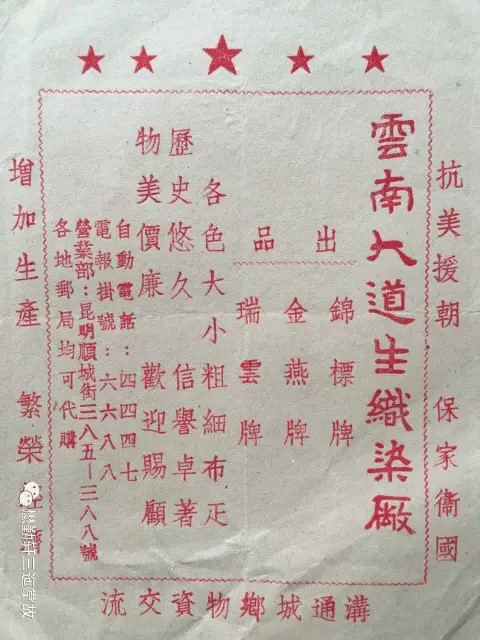 抗美援朝 保家衛國
雲南大道生織染廠
出品
錦標牌
金燕牌
瑞雲牌
各色大小粗細布疋
歷史悠久 信譽卓著
物美價廉 歡迎賜顧
自動電話：四四四七
電報掛號：六六八八
營業部：昆明順城街三八五—三八八號
各地郵局均可代購
增加生產 繁榮
溝通城鄉物資交流
懋新轩三迤掌故